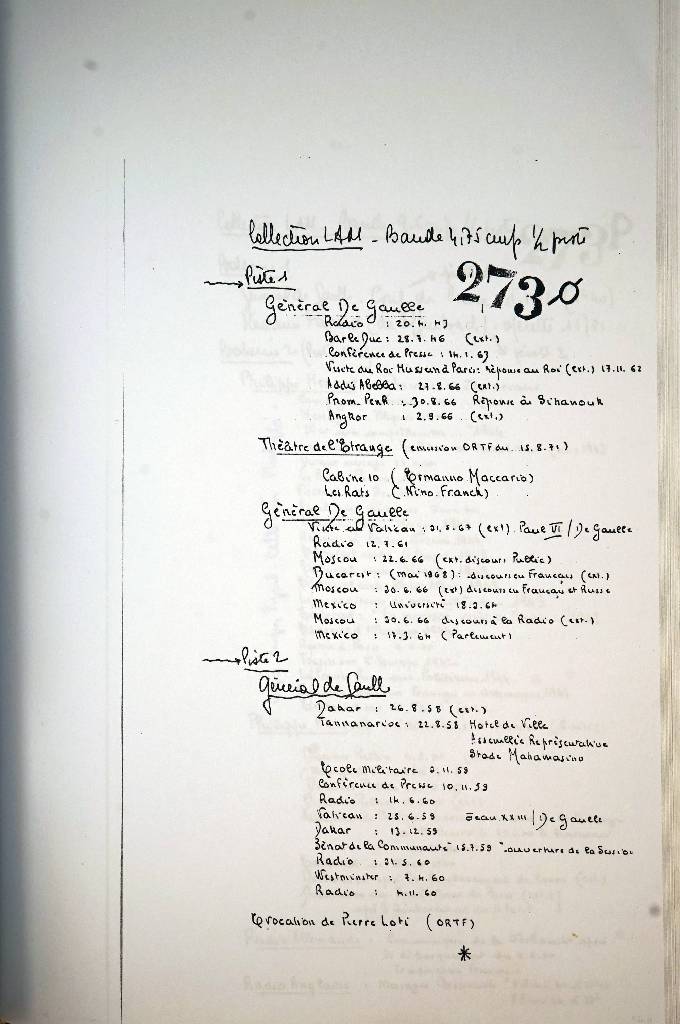 Collection LAM - Bande 4,75 cm/p 1/2 piste
Piste 1
2730
Général De Gaulle
Radio : 20.4.43
Bar le Duc : 28.7.46 (ext.)
Conférence de Presse : 14.1.63
Visite du Roi Hussein à Paris : réponse au Roi (ext.) 17.11.62
Addis Abeba : 27.8.66 (ext.)
Pnom.Penh : 30.8.66 Réponse à Sihanouk
Angkor : 2.9.66 (ext.)
Théâtre de l'Etrange (emission ORTF du 15.8.71)
Cabine 10 (Ermanno Maccario)
Les Rats (Nino Franck)
Général De Gaulle
Visite au Vatican : 31.5.67 (ext) Paul VI / De Gaulle
Radio 12.7.61
Moscou : 22.6.66 (ext. discours Public)
Bucarest : (mai 1968) : discours en Français (ext.)
Moscou : 30.6.66 (ext) discours en Français et Russe
Mexico : Université 18.3.64
Moscou : 30.6.66 discours à la Radio (ext.)
Mexico : 17.3.64 (Parlement)
Piste 2
Général de Gaulle
Dakar : 26.8.58 (ext.)
Tannanarive : 22.8.58 Hotel de Ville
Assemblée Représentative
Stade Mahamasino
Ecole Militaire 3.11.59
Conférence de Presse 10.11.59
Radio : 14.6.60
Vatican : 25.6.59 Jean XXIII / De Gaulle
Dakar : 13.12.59
Sénat de la Communauté 15.7.59 ouverture de la Session
Radio : 31.5.60
Westminster : 7.4.60
Radio : 4.11.60
Evocation de Pierre Loti (ORTF)
*